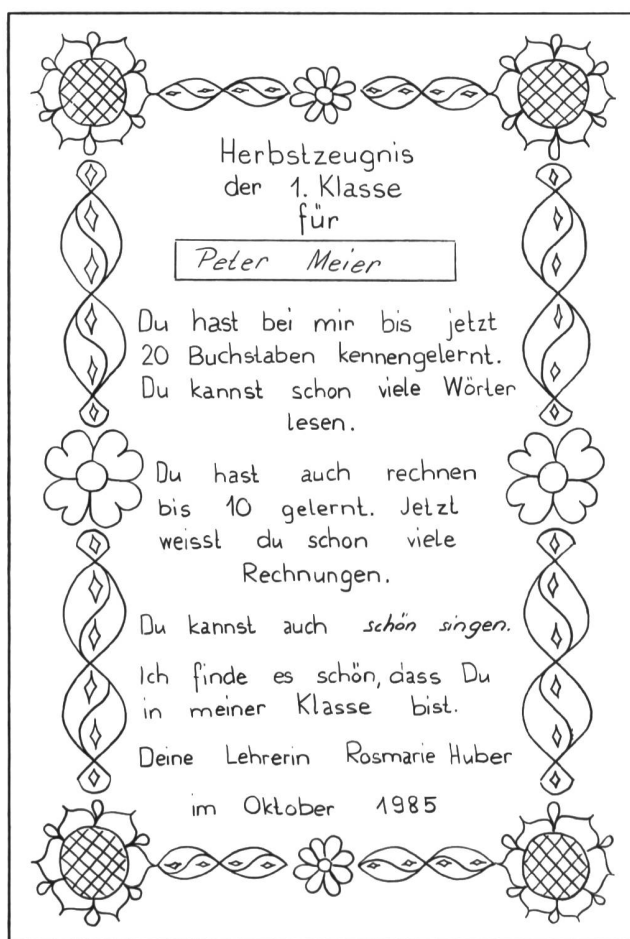 Herbstzeugnis
der 1. Klasse
für
Peter Meier
Du hast bei mir bis jetzt
20 Buchstaben kennengelernt.
Du kannst schon viele Wörter
lesen.
Du hast auch rechnen
bis 10 gelernt. Jetzt
weisst du schon viele
Rechnungen.
Du kannst auch schön singen.
Ich finde es schön, dass Du
in meiner Klasse bist.
Deine Lehrerin Rosmarie Huber
im Oktober 1985